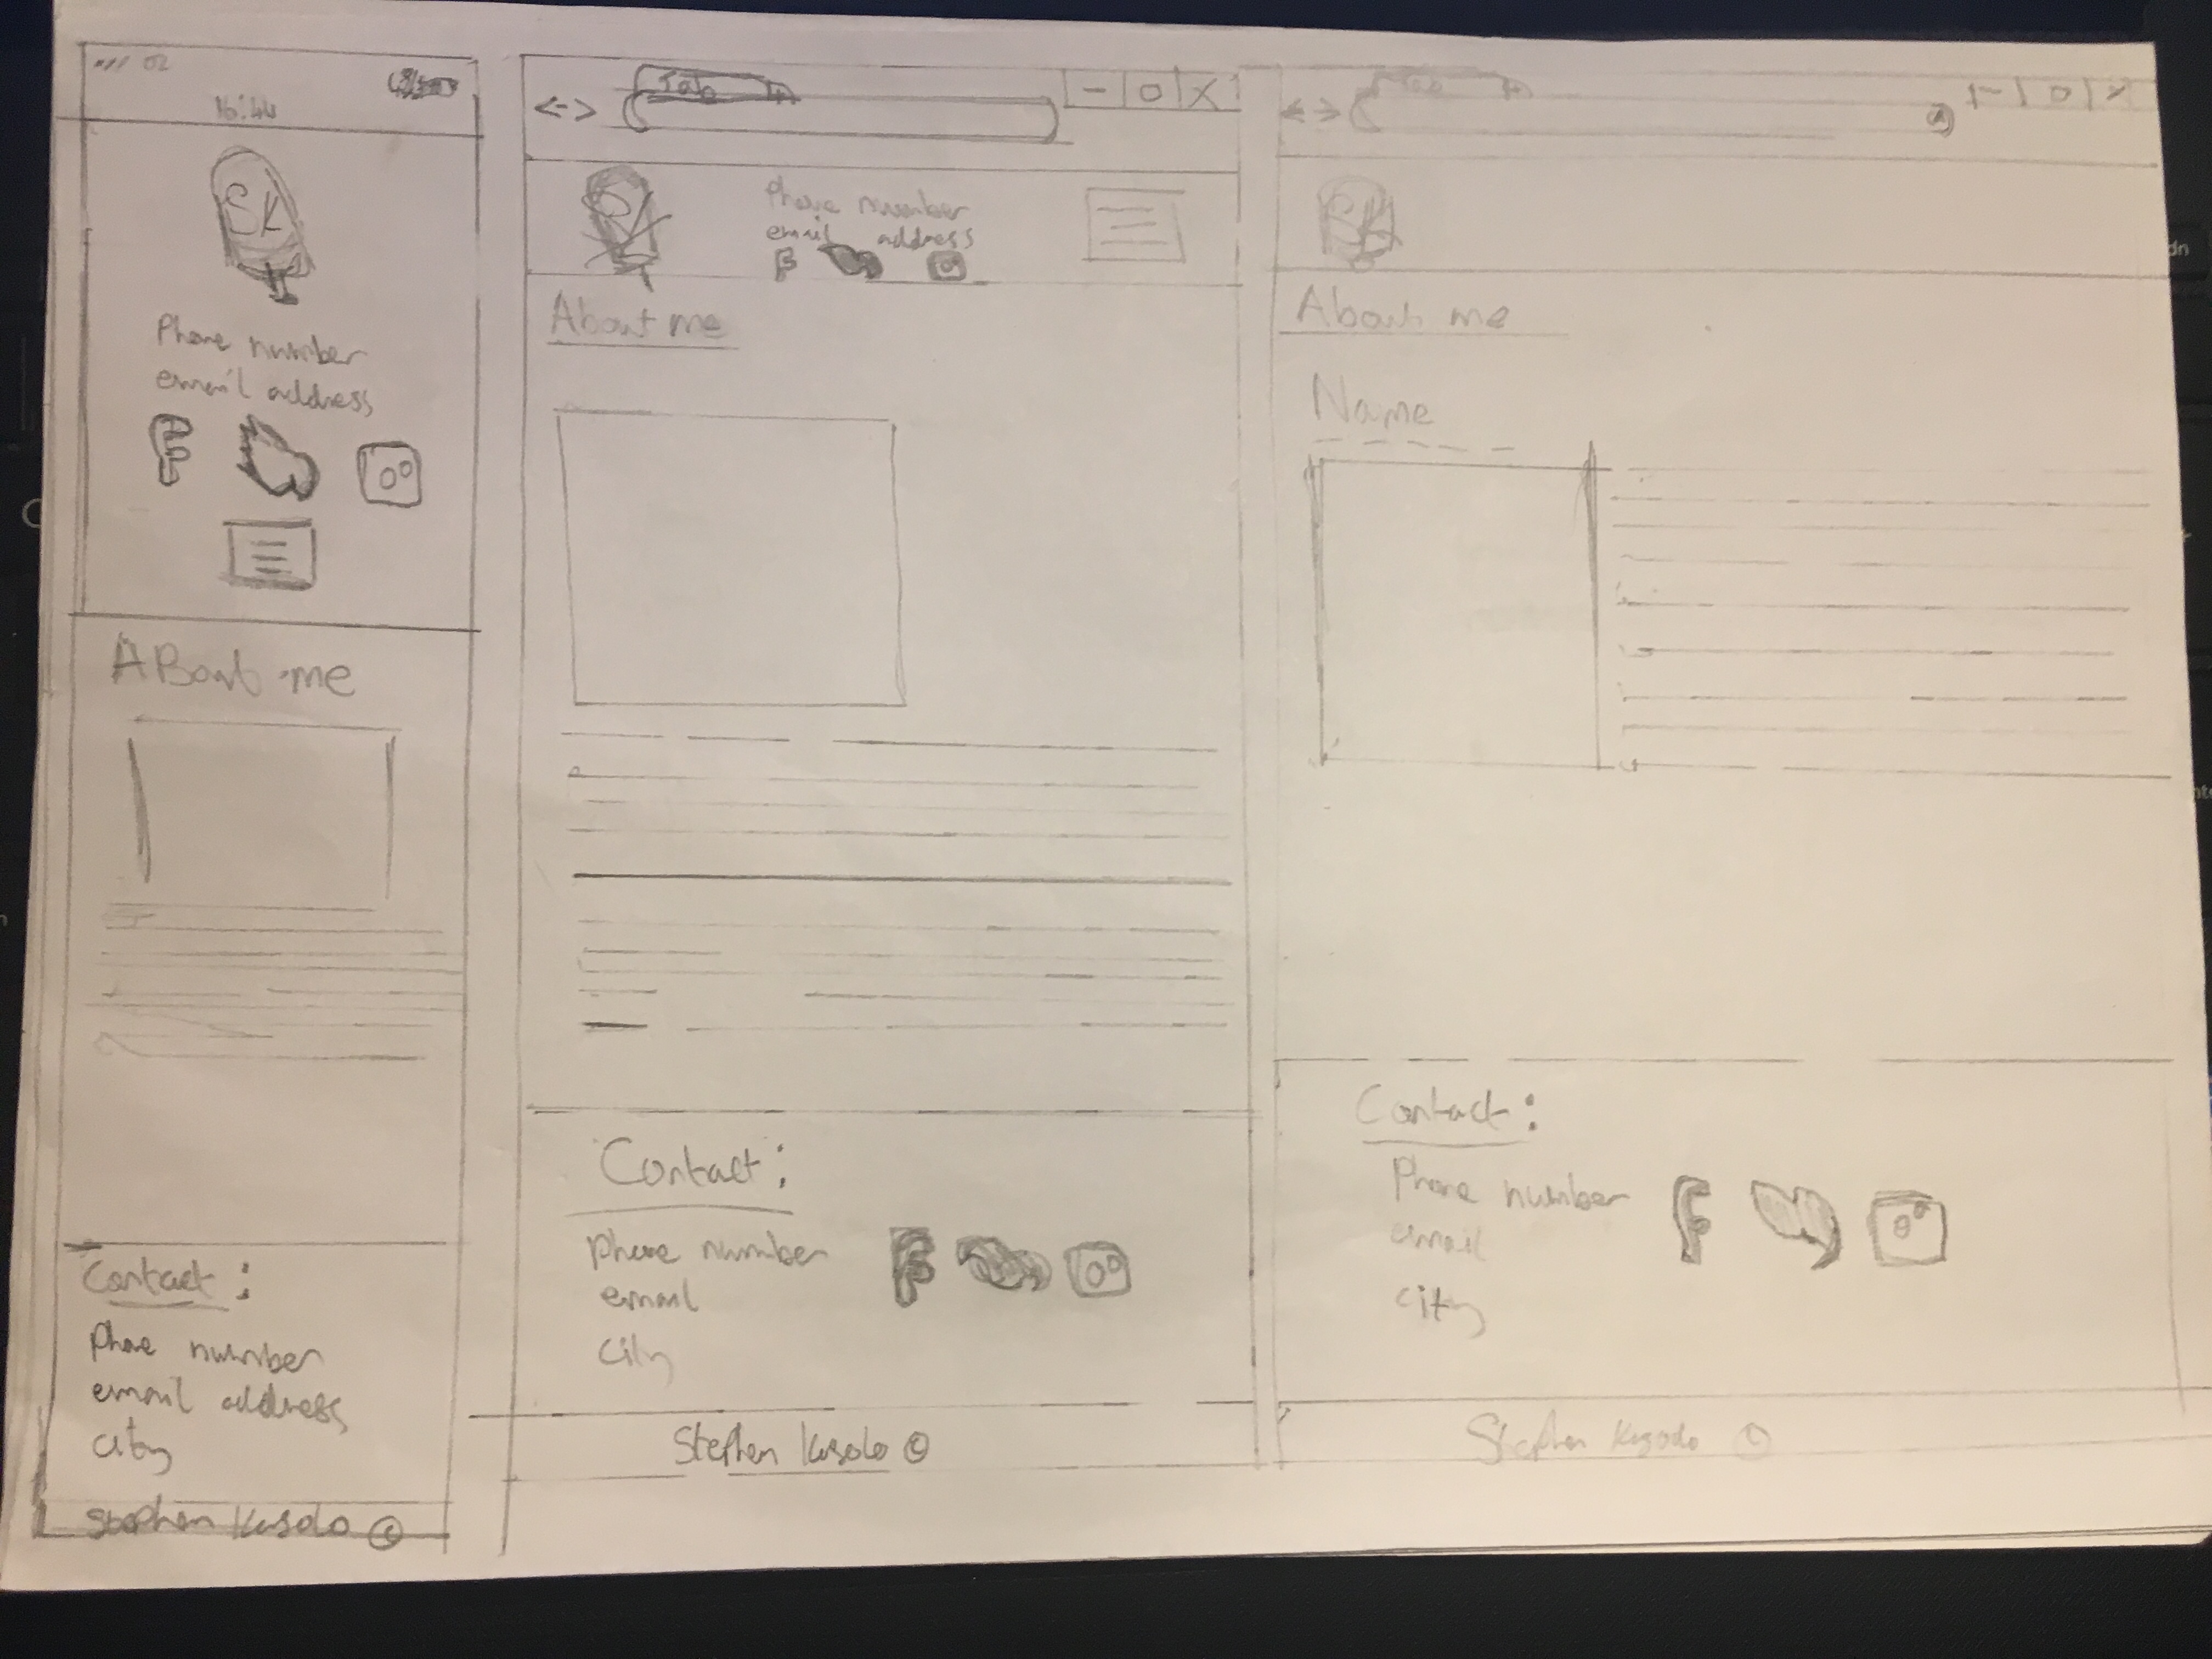 O2
16:44
SK
Phone number
email address
F
ABout me
Contact :
Phone number
email address
city
Stephen Kusolo ©
Tab
Phone number
email address
F
About me
Contact :
phone number
email
city
Stephen Kusolo ©
Tab
SK
About me
Name
Contact :
Phone number
email
city
Stephen ©